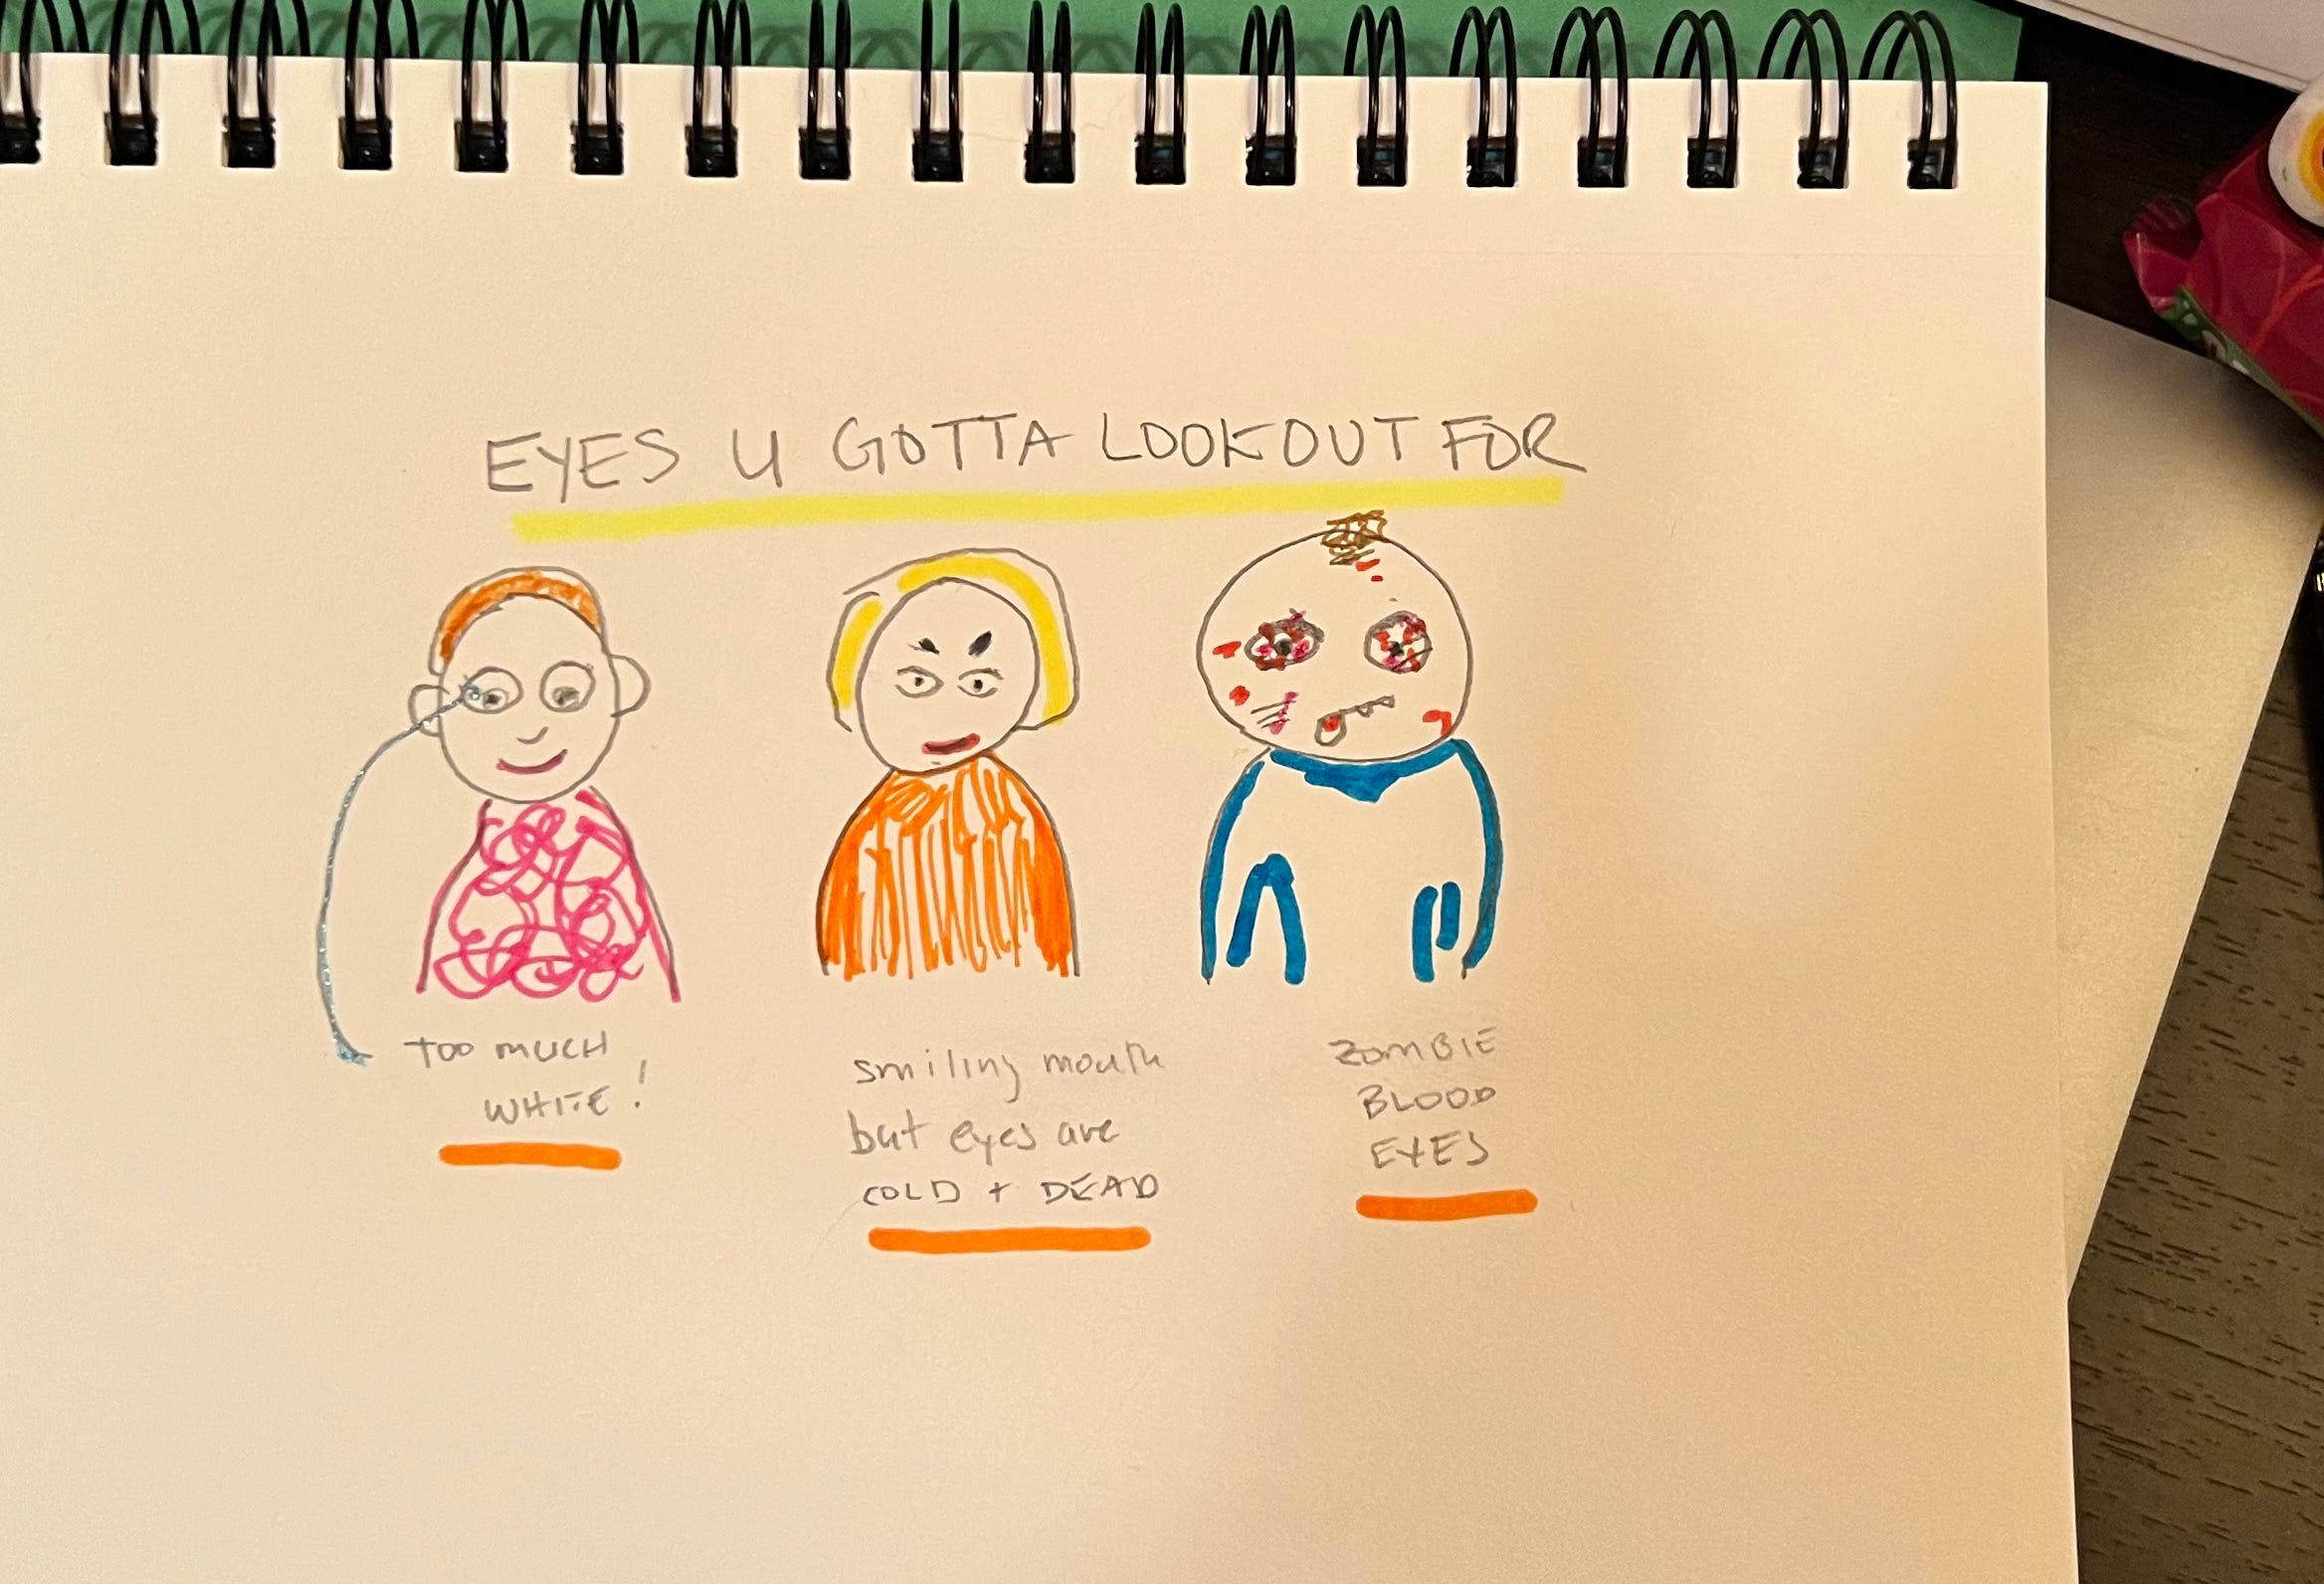 EYES U GOTTA LOOKOUT FOR
TOO MUCH
WHITE!
smiling mouth
but eyes are
COLD + DEAD
ZOMBIE
BLOOD
EYES